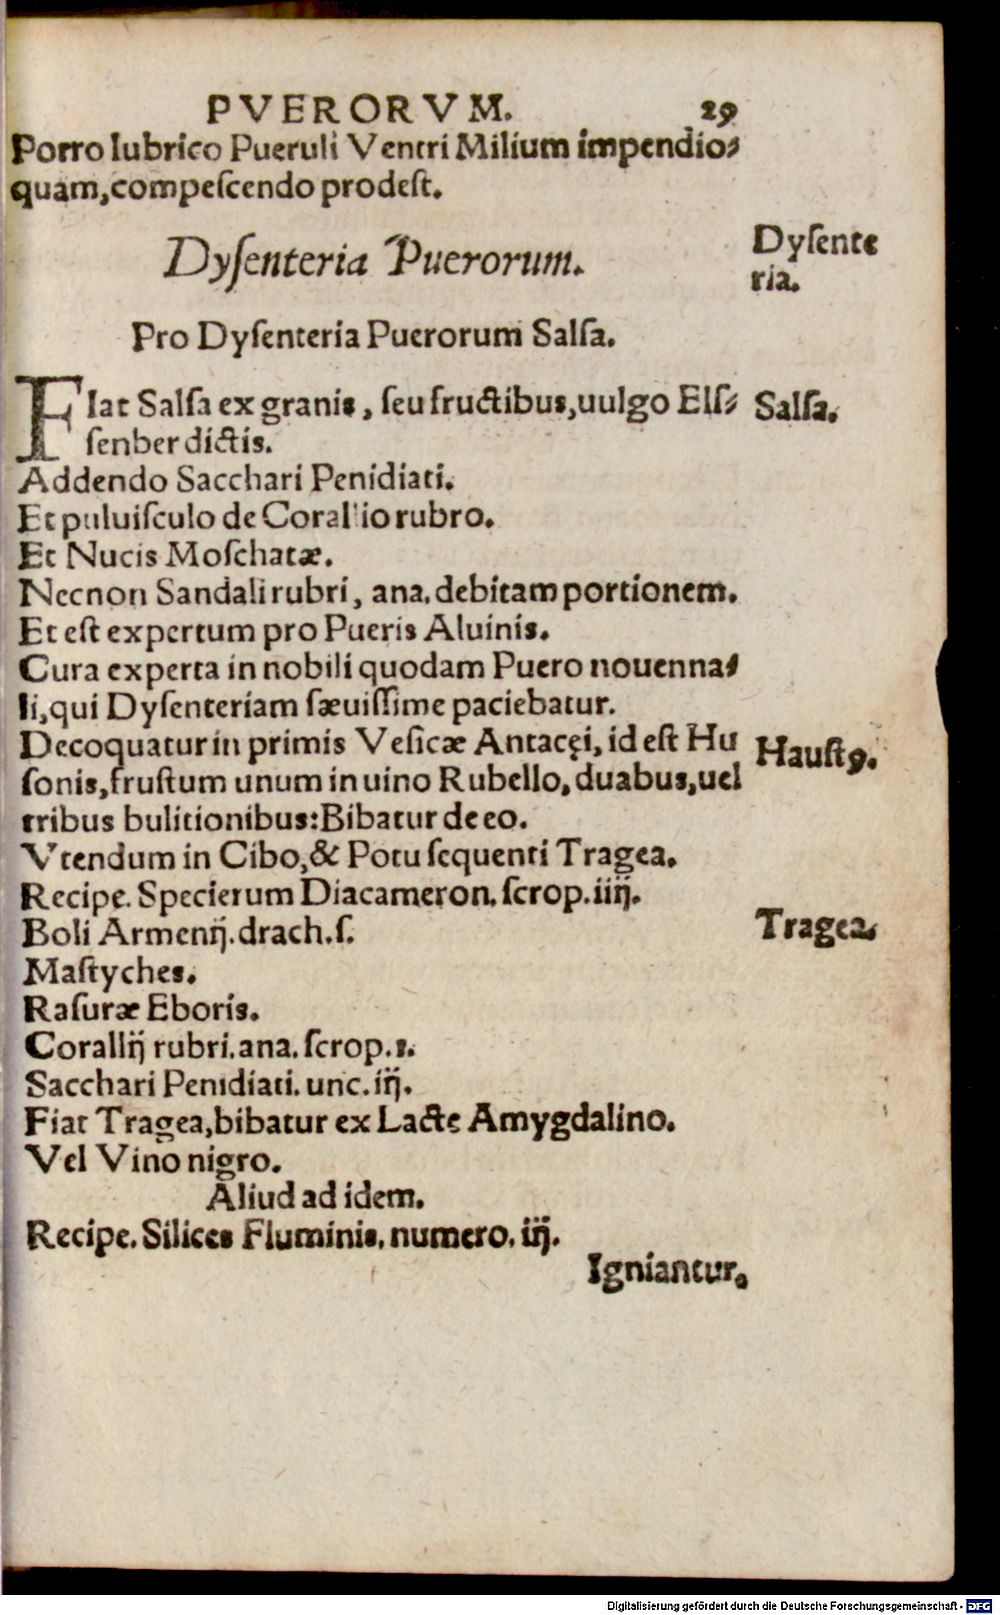 PVERORVM. 29
Porro lubrico Pueruli Ventri Milium impendio⸗
quam,compeſcendo prodeſt.
Dyſenteria Puerorum.
Dyſente
ria.
Pro Dyſenteria Puerorum Salſa.
FIat Salſa ex granis, ſeu fructibus,uulgo Elſ⸗
Salſa.
ſenber dictis.
Addendo Sacchari Penidiati.
Et puluiſculo de Corallio rubro.
Et Nucis Moſchatæ.
Necnon Sandali rubri, ana. debitam portionem.
Et eſt expertum pro Pueris Aluinis.
Cura experta in nobili quodam Puero nouenna⸗
li,qui Dyſenteriam ſæuiſſime paciebatur.
Decoquatur in primis Veſicæ Antacęi, id eſt Hu
Hauſtꝰ.
ſonis,fruſtum unum in uino Rubello, duabus,uel
tribus bulitionibus:Bibatur de eo.
Vtendum in Cibo,& Potu ſequenti Tragea.
Recipe. Specierum Diacameron. ſcrop. iiij.
Boli Armenij. drach. ſ.
Tragea.
Maſtyches.
Raſuræ Eboris.
Corallij rubri. ana. ſcrop. 1.
Sacchari Penidiati. unc. iij.
Fiat Tragea,bibatur ex Lacte Amygdalino.
Vel Vino nigro.
Aliud ad idem.
Recipe. Silices Fluminis. numero. iij.
Igniantur.
Digitalisierung gefördert durch die Deutsche Forschungsgemeinschaft - DFG